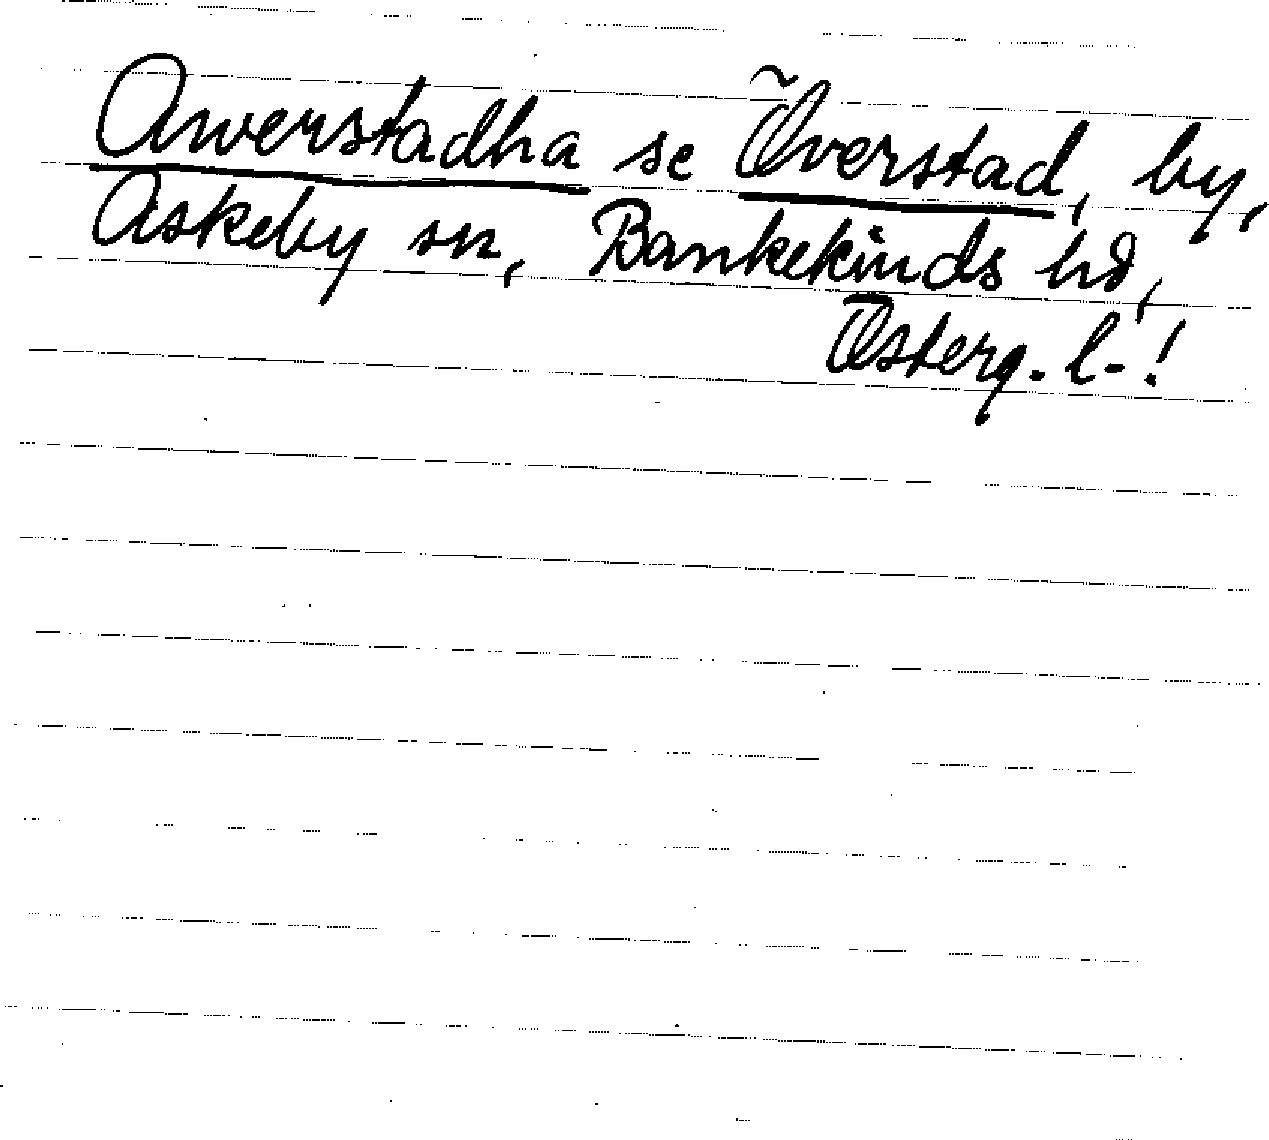 Awerstadha se Överstad, by,
Askeby sn, Bankekinds hd,
Österg. l-!